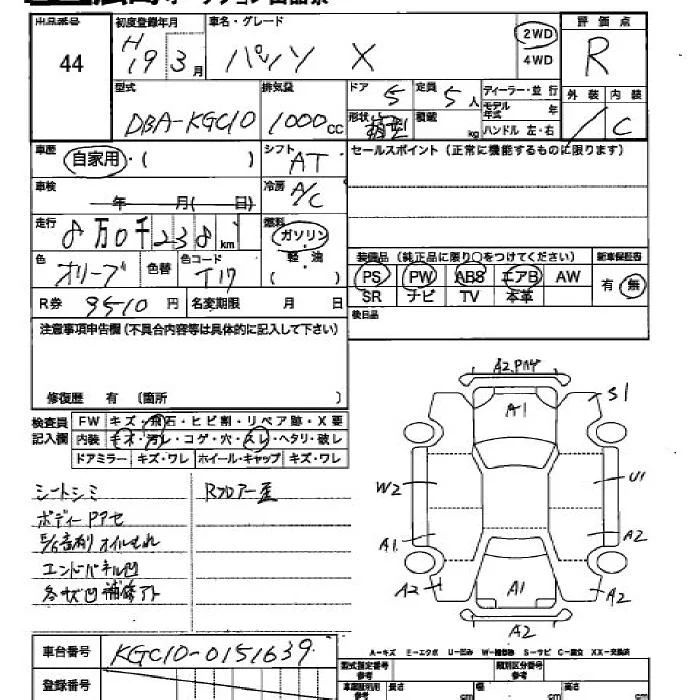 出品番号 初度登録年月 車名・グレード 評価点
44 H19 3月 パッソ X 2WD 4WD R
型式 排気量 ドア 5 定員 5人 ディーラー・並行 外装 内装
DBA-KGC10 1000cc 形状 箱型 積載 kg モデル年式 年 ハンドル 左・右 / C
車歴 自家用・( ) シフト AT セールスポイント(正常に機能するものに限ります)
車検 年 月( 日) 冷房 A/C
走行 8万0千238km 燃料 ガソリン・軽油 ( )
装備品(純正品に限り○をつけてください) 新車保証書
色 オリーブ 色替 色コード T17
PS PW ABS エアB AW 有・無
SR ナビ TV 本革
R券 9510円 名変期限 月 日 後日品
注意事項申告欄(不具合内容等は具体的に記入して下さい)
修復歴 有 〔箇所 〕
検査員記入欄
FW キズ・飛石・ヒビ割・リペア跡・X要
内装 キオ・汚レ・コゲ・穴・スレ・ヘタリ・破レ
ドアミラー キズ・ワレ ホイール・キャップ キズ・ワレ
シートシミ Rフロアー歪
ボディーPアセ
E/G音有り オイルもれ
エンドパネル凹
各キズ凹 補修アト
A2.Pハゲ
A1
S1
W2
U1
A1
A2
A2
A1
A2
A2
A-キズ E-エクボ U-凹み W-補修跡 S-サビ C-腐立 XX-交換済
車台番号 KGC10-0151639
登録番号
型式指定番号 参考 類別区分番号 参考
長さ cm 幅 cm 高さ cm